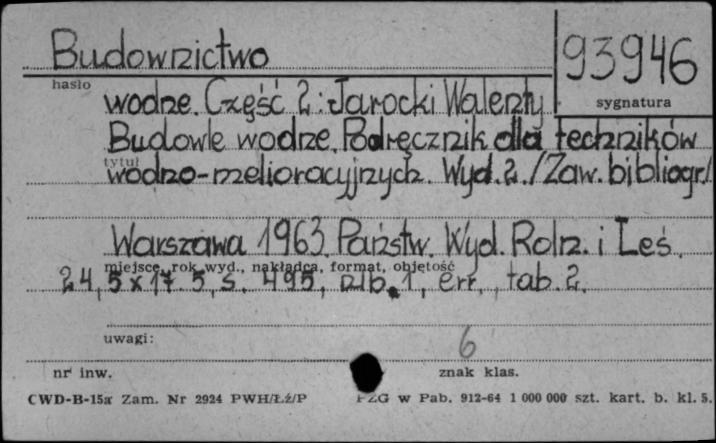 Budownictwo
93946
hasło
sygnatura
wodne. Część 2: Jarocki Walenty
Budowle wodne. Podręcznik dla techników
tytuł
wodno-melioracyjnych. Wyd. 2. /Zaw. bibliogr./
Warszawa 1963. Państw. Wyd. Roln. i Leś.
miejsce, rok wyd., nakładca, format, objętość
24,5 x 17,5, s. 495, nlb. 1, err., tab. 2.
uwagi:
6
nr inw.
znak klas.
CWD-B-15a Zam. Nr 2924 PWH/Łź/P
PZG w Pab. 912-64 1 000 000 szt. kart. b. kl. 5.